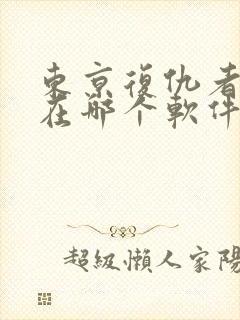 東京復仇者
在哪个軟件
超級懶人家陽